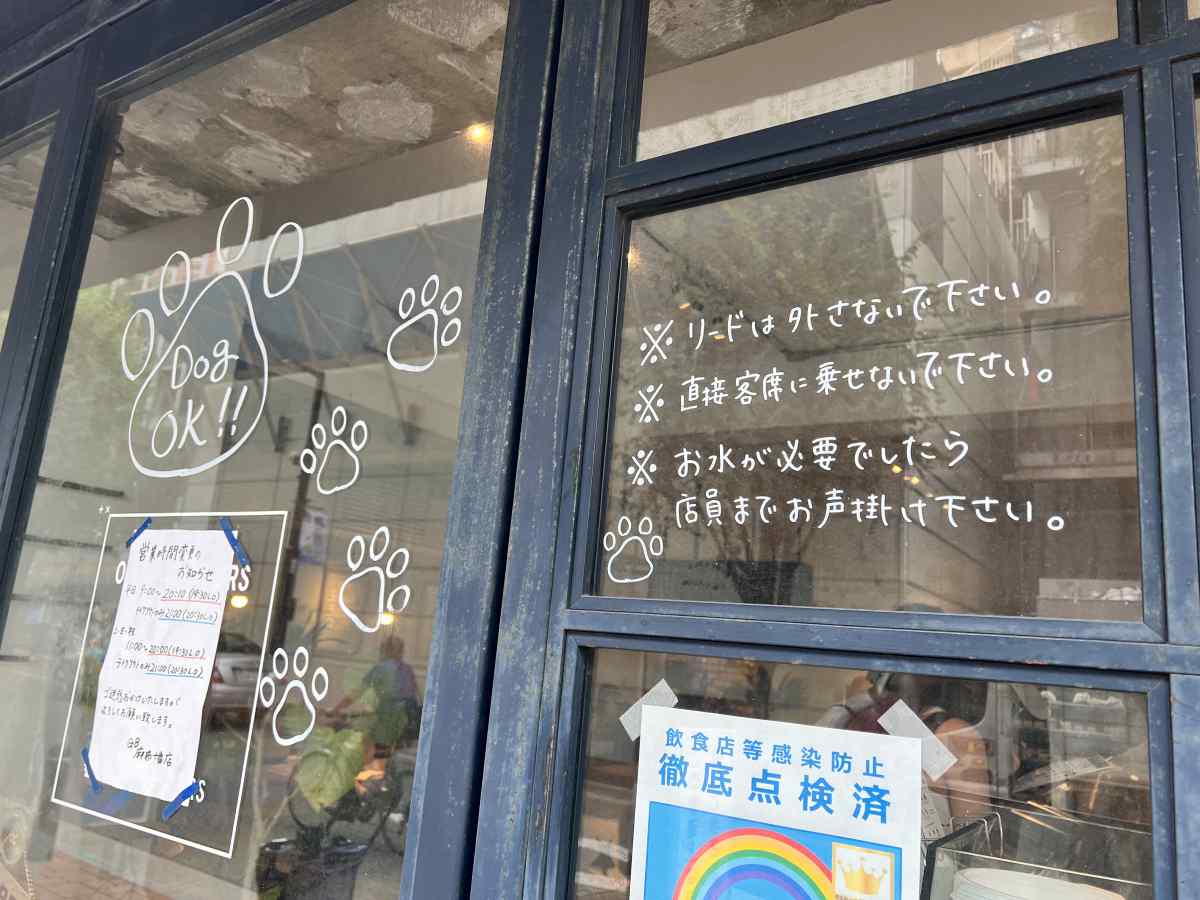 Dog
OK!!
※リードは外さないで下さい。
※直接客席に乗せないで下さい。
※お水が必要でしたら
店員までお声掛け下さい。
営業時間変更の
お知らせ
平日 9:00〜20:00(19:30LO)
テイクアウトのみ21:00(20:30LO)
土・日・祝
11:00〜20:00(19:30LO)
テイクアウトのみ21:00(20:30LO)
ご迷惑おかけいたしますが
よろしくお願い致します。
麻布十番店
RS
飲食店等感染防止
徹底点検済